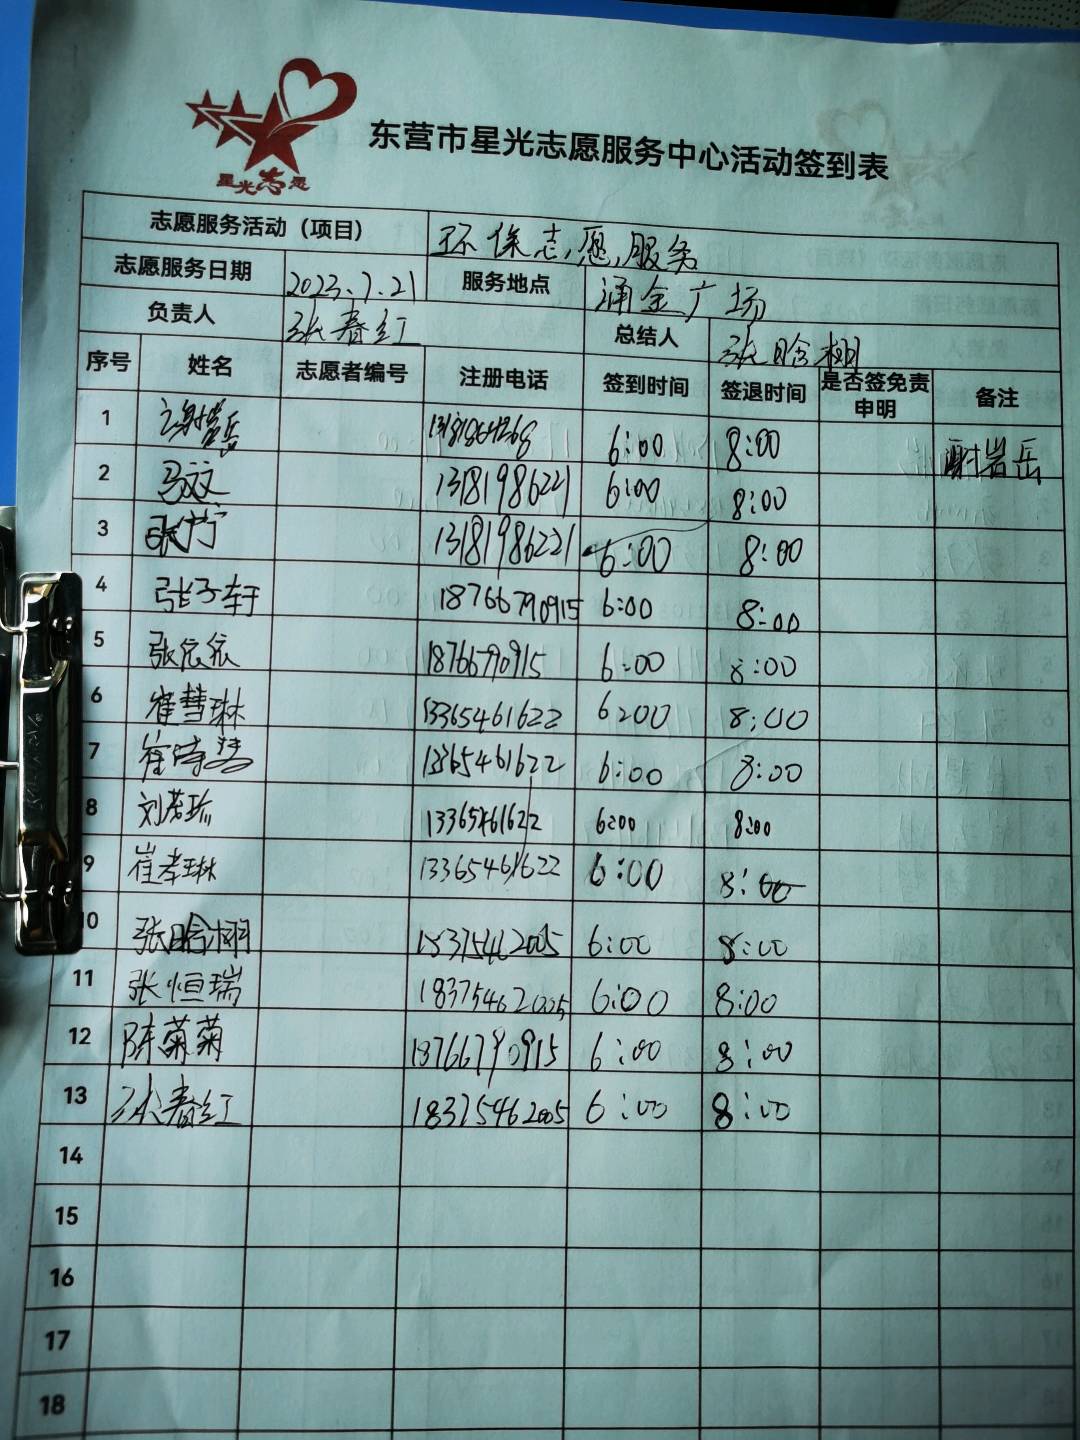 星光志愿
东营市星光志愿服务中心活动签到表
志愿服务活动（项目） 环保志愿服务
志愿服务日期 2023.7.21 服务地点 涌金广场
负责人 张春红 总结人 张晗栩
序号 姓名 志愿者编号 注册电话 签到时间 签退时间 是否签免责申明 备注
1 谢岩岳 6:00 8:00 谢岩岳
2 马文 13181986221 6:00 8:00
3 张宁 13181986221 6:00 8:00
4 张子轩 18766790915 6:00 8:00
5 张依依 18766790915 6:00 8:00
6 崔彗琳 13365461622 6:00 8:00
7 崔 13365461622 6:00 8:00
8 刘 13365461622 6:00 8:00
9 崔孝琳 13365461622 6:00 8:00
10 张晗栩 18375462005 6:00 8:00
11 张恒瑞 18375462005 6:00 8:00
12 陈菊菊 18766790915 6:00 8:00
13 张春红 18375462005 6:00 8:00
14
15
16
17
18